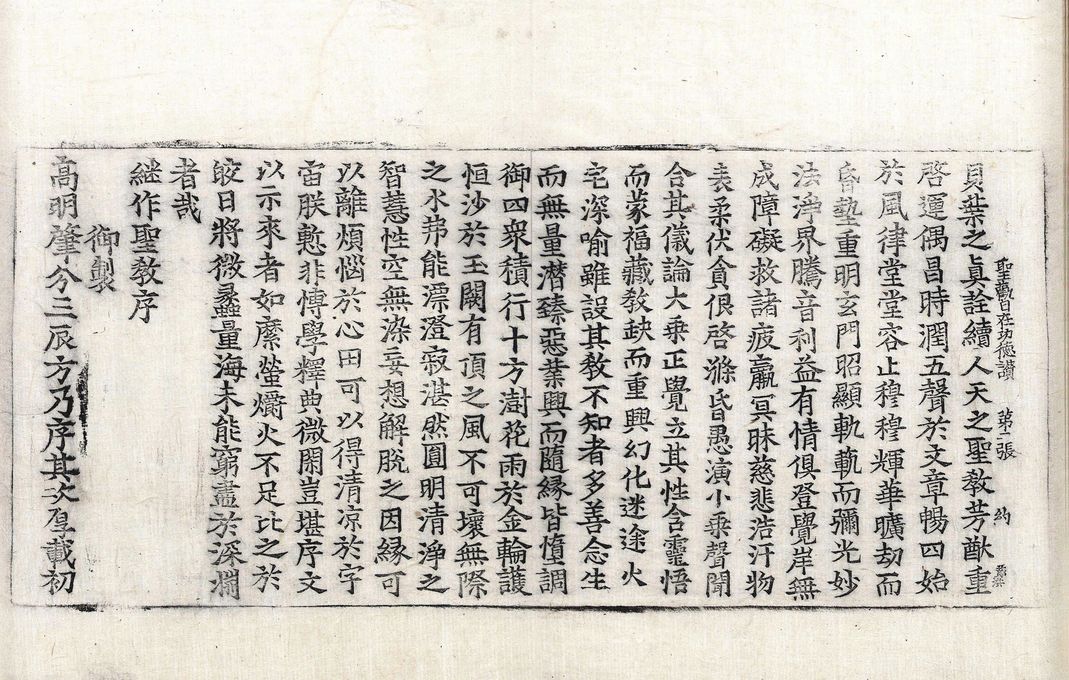 功德讚 第一張 約
貝葉之眞詮續人天之聖教芳猷重
啓遭偶昌時潤五聲於文章暢四始
於風律堂堂容止穆穆輝華曠劫而
昏墊重明玄門昭顯軌範而彌光妙
法淨界騰音利益有情俱登覺岸無
成障礙救諸疲羸冥昧慈悲浩汗物
表柔伏貪佷啓滌昏愚演小乘聲聞
合其儀論大乘正覺立其性含靈悟
而蒙福藏教缺而重興幻化迷途火
宅深喻雖設其教不知者多善念生
而無量潛臻惡業興而隨緣皆墮調
御四衆積行十方澍花雨於金輪護
恒沙於玉闕有頂之風不可壞無際
之水弗能漂澄寂湛然圓明清淨之
智慧性空無染妄想解脫之因緣可
以離煩惱於心田可以得清凉於宇
宙朕慙非博學釋典微閑豈堪序文
以示來者如縻螢爝火不足比之於
皎日將微蠡量海未能窮盡於深淵
者哉
継作聖教序
御製
高明肇分三辰方乃序其次厚載初